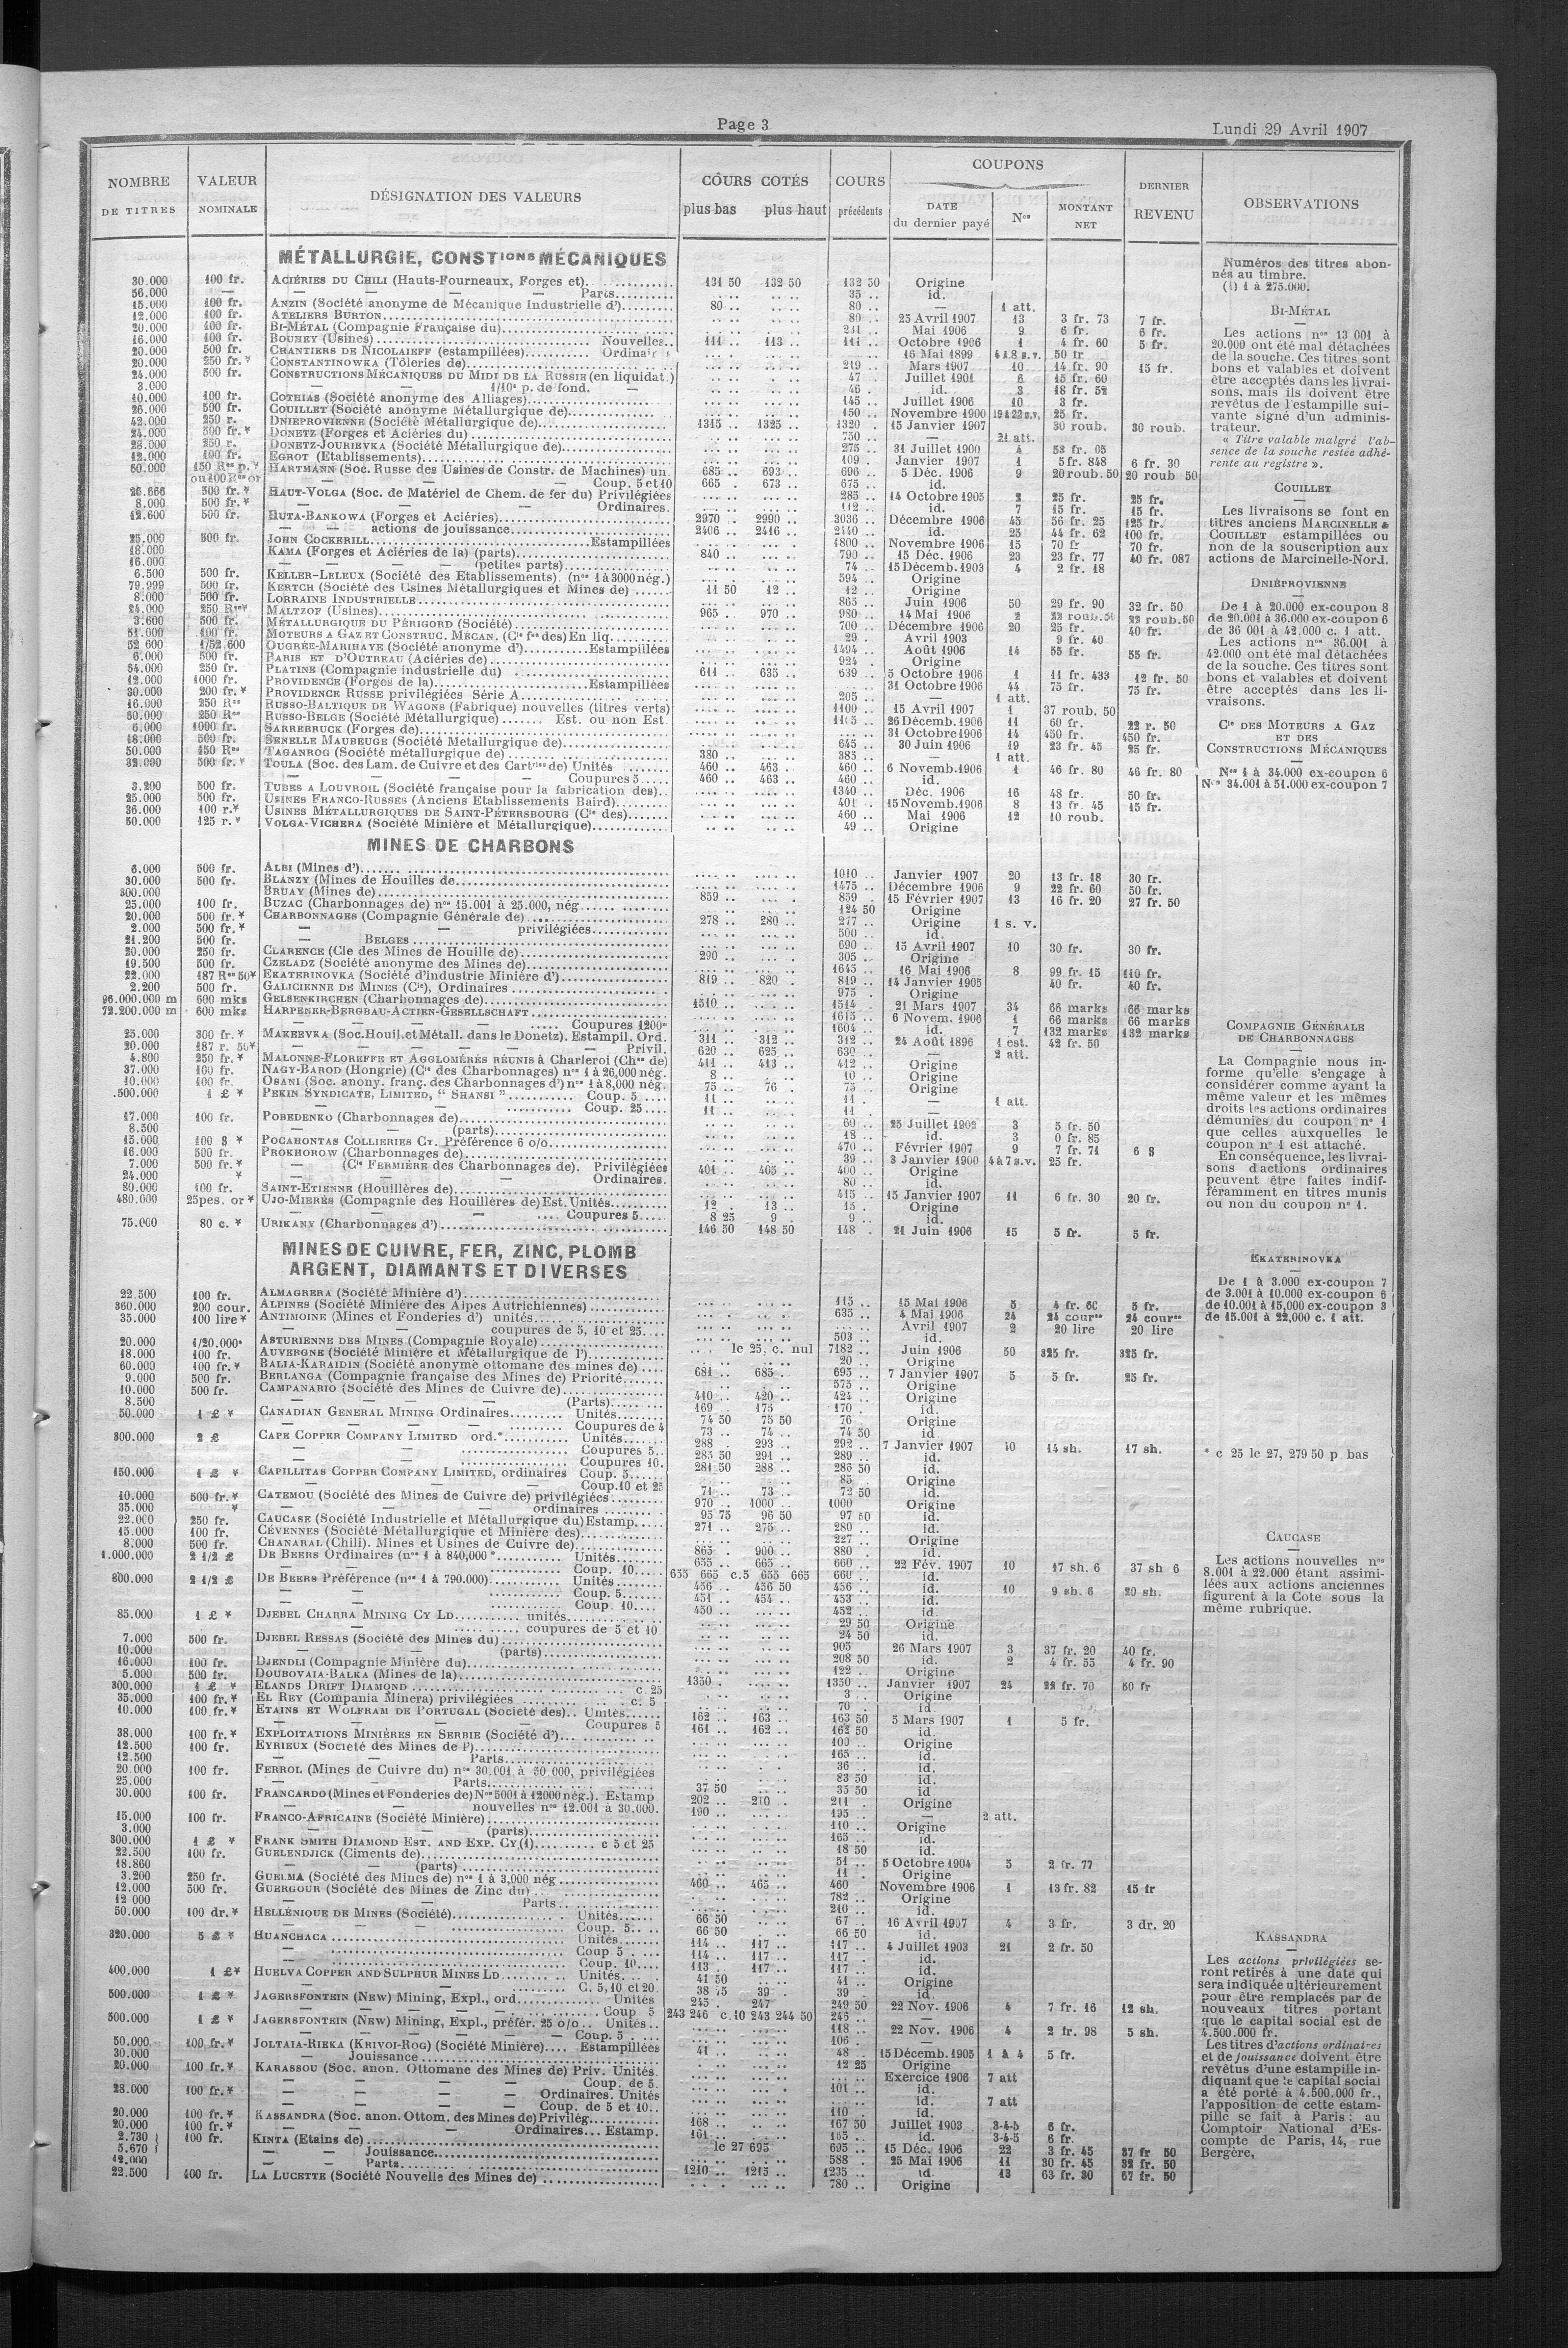 Page 3
Lundi 29 Avril 1907
NOMBRE DE TITRES
VALEUR NOMINALE
DÉSIGNATION DES VALEURS
COURS COTÉS
plus bas plus haut
COURS précédents
COUPONS
DATE du dernier payé
Nos
MONTANT NET
DERNIER REVENU
OBSERVATIONS
MÉTALLURGIE, CONSTions MÉCANIQUES
30.000 100 fr. ACIÉRIES DU CHILI (Hauts-Fourneaux, Forges et) 131 50 132 50 132 50 Origine
56.000 — — — — Parts 35 .. id.
15.000 100 fr. ANZIN (Société anonyme de Mécanique Industrielle d') 80 .. 80 .. — 1 att.
12.000 100 fr. ATELIERS BURTON
20.000 100 fr. BI-MÉTAL (Compagnie Française du)
16.000 100 fr. BOUHEY (Usines) Nouvelles
20.000 500 fr. CHANTIERS DE NICOLAIEFF (estampillées)
20.000 250 fr. CONSTANTINOWKA (Tôleries de)
24.000 500 fr. CONSTRUCTIONS MÉCANIQUES DU MIDI DE LA RUSSIE (en liquidat.)
3.000 — — 1/10e p. de fond. —
10.000 100 fr. COTHIAS (Société anonyme des Alliages)
26.000 500 fr. COUILLET (Société anonyme Métallurgique de)
42.000 250 r. DNIEPROVIENNE (Société Métallurgique de) 1315 .. 1325 .. 1320 . 15 Janvier 1907 30 roub. 30 roub.
24.000 500 fr.* DONETZ (Forges et Aciéries du)
28.000 250 r. DONETZ-JOURIEVKA (Société Métallurgique de)
12.000 100 fr. EGROT (Etablissements)
60.000 150 Res p.* HARTMANN (Soc. Russe des Usines de Constr. de Machines) un. 685 .. 693 .. 696 .. 5 Déc. 1906 9 20 roub. 50 20 roub 50
ou 100 Res or — — Coup. 5 et 10 665 . 673 .. 675 .. id.
26.666 500 fr.* HAUT-VOLGA (Soc. de Matériel de Chem. de fer du) Privilégiées 285 .. 14 Octobre 1905 2 25 fr. 25 fr.
8.000 500 fr.* — — Ordinaires. 112 .. id. 7 15 fr. 15 fr.
12.600 500 fr. HUTA-BANKOWA (Forges et Aciéries) 2970 . 2990 .. 3036 .. Décembre 1906 45 56 fr. 25 125 fr.
— — actions de jouissance 2406 .. 2416 .. 2440 .. id. 25 44 fr. 62 100 fr.
25.000 500 fr. JOHN COCKERILL Estampillées 1800 .. Novembre 1906 15 70 fr 70 fr.
18.000 KAMA (Forges et Aciéries de la) (parts) 840 .. 790 .. 15 Déc. 1906 23 23 fr. 77 40 fr. 087
16.000 — — — — (petites parts) 74 .. 15 Décemb. 1903 4 2 fr. 18
6.500 500 fr. KELLER-LELEUX (Société des Etablissements) (nos 1 à 3000 nég.) 594 .. Origine
79.999 500 fr. KERTCH (Société des Usines Métallurgiques et Mines de) 11 50 12 .. 12 .. Origine
8.000 500 fr. LORRAINE INDUSTRIELLE 865 .. Juin 1906 50 29 fr. 90 32 fr. 50
24.000 250 Res* MALTZOF (Usines) 965 .. 970 .. 980 .. 14 Mai 1906 2 22 roub. 50 22 roub. 50
3.600 500 fr. MÉTALLURGIQUE DU PÉRIGORD (Société) 700 .. Décembre 1906 20 25 fr. 40 fr.
51.000 100 fr. MOTEURS A GAZ ET CONSTRUC. MÉCAN. (Cie fse des) En liq. 29 .. Avril 1903 9 fr. 40
52 600 1/52.600 OUGRÉE-MARIHAYE (Société anonyme d') Estampillées 1494 .. Août 1906 14 55 fr. 55 fr.
6.000 500 fr. PARIS ET D'OUTREAU (Aciéries de) 924 . Origine
64.000 250 fr. PLATINE (Compagnie industrielle du) 611 .. 635 .. 639 .. 5 Octobre 1906 1 11 fr. 433 12 fr. 50
12.000 1000 fr. PROVIDENCE (Forges de la) Estampillées 31 Octobre 1906 44 75 fr. 75 fr.
30.000 200 fr.* PROVIDENCE RUSSE privilégiées Série A 205 .. — 1 att.
16.000 250 Res RUSSO-BALTIQUE DE WAGONS (Fabrique) nouvelles (titres verts) 1100 .. 15 Avril 1907 1 37 roub. 50
60.000 250 Res RUSSO-BELGE (Société Métallurgique) Est. ou non Est. 1105 .. 26 Décemb. 1906 11 60 fr. 22 r. 50
6.000 1000 fr. SARREBRUCK (Forges de) 31 Octobre 1906 14 450 fr. 450 fr.
18.000 500 fr. SENELLE MAUBEUGE (Société Metallurgique de) 645 .. 30 Juin 1906 19 23 fr. 45 25 fr.
50.000 150 Res TAGANROG (Société métallurgique de) 380 .. 385 .. — 1 att.
32.000 500 fr.* TOULA (Soc. des Lam. de Cuivre et des Cartries de) Unités 460 .. 463 . 460 .. 6 Novemb. 1906 1 46 fr. 80 46 fr. 80
— — — — Coupures 5 460 .. 463 .. 460 .. id.
3.200 500 fr. TUBES A LOUVROIL (Société française pour la fabrication des) 1340 .. Déc. 1906 16 48 fr. 50 fr.
25.000 500 fr. USINES FRANCO-RUSSES (Anciens Etablissements Baird) 401 .. 15 Novemb. 1906 8 13 fr. 45 15 fr.
36.000 100 r.* USINES MÉTALLURGIQUES DE SAINT-PÉTERSBOURG (Cie des) 460 .. Mai 1906 12 10 roub.
50.000 125 r.* VOLGA-VICHERA (Société Minière et Métallurgique) 49 .. Origine
MINES DE CHARBONS
6.000 500 fr. ALBI (Mines d') 1010 .. Janvier 1907 20 13 fr. 18 30 fr.
30.000 500 fr. BLANZY (Mines de Houilles de 1475 .. Décembre 1906 9 22 fr. 60 50 fr.
300.000 BRUAY (Mines de) 859 .. 859 . 15 Février 1907 13 16 fr. 20 27 fr. 50
25.000 100 fr. BUZAC (Charbonnages de) nos 15.001 à 25.000, nég. 124 50 Origine
20.000 500 fr.* CHARBONNAGES (Compagnie Générale de) 278 .. 280 .. 277 .. Origine 1 s. v.
2.000 500 fr.* — privilégiées 500 .. id.
21.200 500 fr. — BELGES 690 .. 15 Avril 1907 10 30 fr. 30 fr.
20.000 250 fr. CLARENCE (Cie des Mines de Houille de) 290 .. 305 .. Origine
19.500 500 fr. CZELADZ (Société anonyme des Mines de) 1645 .. 16 Mai 1906 8 99 fr. 15 110 fr.
22.000 187 Res 50* EKATERINOVKA (Société d'industrie Minière d') 819 .. 820 . 819 .. 14 Janvier 1905 40 fr. 40 fr.
2.200 500 fr. GALICIENNE DE MINES (Cie), Ordinaires 975 . Origine
96.000.000 m 600 mks GELSENKIRCHEN (Charbonnages de) 1510 .. 1514 . 21 Mars 1907 34 66 marks 66 marks
72.200.000 m 600 mks HARPENER-BERGBAU-ACTIEN-GESELLSCHAFT 1615 .. 6 Novem. 1906 1 66 marks 66 marks
— — — Coupures 1200m 1604 .. id. 7 132 marks 132 marks
25.000 300 fr.* MAKEEVKA (Soc. Houil. et Métall. dans le Donetz). Estampil. Ord. 311 .. 312 .. 312 .. 24 Août 1896 1 est. 42 fr. 50
20.000 187 r. 50* — — Privil. 620 .. 625 .. 630 .. — 2 att.
4.800 250 fr.* MALONNE-FLOREFFE ET AGGLOMÉRÉS RÉUNIS à Charleroi (Chges de) 411 .. 413 .. 412 .. Origine
37.000 100 fr. NAGY-BAROD (Hongrie) (Cie des Charbonnages) nos 1 à 26,000 nég. 8 .. 10 .. Origine
10.000 100 fr. OSANI (Soc. anony. franç. des Charbonnages d') nos 1 à 8,000 nég. 75 .. 76 . 75 .. Origine
.500.000 1 £ * PEKIN SYNDICATE, LIMITED, “ SHANSI ” Coup. 5 11 .. 11 . — 1 att.
Coup. 25 11 .. 11 . —
17.000 100 fr. POBEDENKO (Charbonnages de) 60 .. 25 Juillet 1902 3 5 fr. 50
8.500 — — (parts) 18 .. id. 3 0 fr. 85
15.000 100 $ * POCAHONTAS COLLIERIES CY. Préférence 6 o/o 470 .. Février 1907 9 7 fr. 71 6 $
16.000 500 fr. PROKHOROW (Charbonnages de) 39 .. 3 Janvier 1900 4 à 7 s.v. 25 fr.
7.000 500 fr.* — (Cie FERMIÈRE des Charbonnages de). Privilégiées 401 .. 405 .. 400 .. Origine
24.000 * — — Ordinaires. 80 .. id.
80.000 100 fr. SAINT-ETIENNE (Houillères de) 415 .. 15 Janvier 1907 11 6 fr. 30 20 fr.
480.000 25pes. or * UJO-MIERÈS (Compagnie des Houillères de) Est. Unités 12 . 13 .. 15 . Origine
— — Coupures 5 8 25 9 . 9 .. id.
75.000 80 c. * URIKANY (Charbonnages d') 146 50 148 50 148 . 21 Juin 1906 15 5 fr. 5 fr.
MINES DE CUIVRE, FER, ZINC, PLOMB
ARGENT, DIAMANTS ET DIVERSES
22.500 100 fr. ALMAGRERA (Société Minière d') 115 .. 15 Mai 1906 5 4 fr. 60 5 fr.
360.000 200 cour. ALPINES (Société Minière des Alpes Autrichiennes) 635 .. 4 Mai 1906 24 24 cournes 24 cournes
35.000 100 lire * ANTIMOINE (Mines et Fonderies d') unités Avril 1907 2 20 lire 20 lire
— coupures de 5, 10 et 25 503 .. id.
20.000 1/20.000e ASTURIENNE DES MINES (Compagnie Royale) le 25. c. nul 7182 .. Juin 1906 50 325 fr. 325 fr.
18.000 100 fr. AUVERGNE (Société Minière et Métallurgique de l') 20 .. Origine
60.000 100 fr.* BALIA-KARAIDIN (Société anonyme ottomane des mines de) 681 .. 685 .. 695 .. 7 Janvier 1907 5 5 fr. 25 fr.
9.000 500 fr. BERLANGA (Compagnie française des Mines de) Priorité 575 .. Origine
10.000 500 fr. CAMPANARIO (Société des Mines de Cuivre de) 410 .. 420 .. 424 .. Origine
8.500 — — — — (Parts) 169 . 175 170 . id.
50.000 1 £ * CANADIAN GENERAL MINING Ordinaires Unités 74 50 75 50 76 . Origine
— — — Coupures de 4 73 .. 74 .. 74 50 id
300.000 2 £ CAPE COPPER COMPANY LIMITED ord.* Unités 288 . 293 .. 292 .. 7 Janvier 1907 10 14 sh. 17 sh.
— — Coupures 5 285 50 291 .. 289 .. id.
— — Coupures 10. 281 50 288 .. 286 50 id.
150.000 1 £ * CAPILLITAS COPPER COMPANY LIMITED, ordinaires Coup. 5 85 . Origine
— — Coup. 10 et 25 71 .. 73 .. 72 50 id.
10.000 500 fr.* CATEMOU (Société des Mines de Cuivre de) privilégiées 970 . 1000 .. 1000 Origine
35.000 * — — ordinaires 95 75 96 50 97 50 id.
22.000 250 fr. CAUCASE (Société Industrielle et Métallurgique du) Estamp. 271 .. 275 .. 280 .. id.
15.000 100 fr. CÉVENNES (Société Métallurgique et Minière des) 227 .. Origine
8.000 500 fr. CHANARAL (Chili). Mines et Usines de Cuivre de) 865 . 900 .. 880 . id.
1.000.000 2 1/2 £ DE BEERS Ordinaires (nos 1 à 840,000 * Unités 655 .. 665 .. 660 .. 22 Fév. 1907 10 17 sh. 6 37 sh 6
— — Coup. 10 655 665 c.5 655 665 660 .. id.
800.000 2 1/2 £ DE BEERS Préférence (nos 1 à 790.000) Unités 456 .. 456 50 456 .. id. 10 9 sh. 6 20 sh.
— — Coup. 5 451 .. 454 .. 453 .. id.
— — Coup. 10 450 .. 452 .. id.
85.000 1 £ * DJEBEL CHARRA MINING CY LD unités 29 50 Origine
— coupures de 5 et 10 24 50 id.
7.000 500 fr. DJEBEL RESSAS (Société des Mines du) 905 26 Mars 1907 3 37 fr. 20 40 fr.
10.000 — — (parts) 208 50 id. 2 4 fr. 55 4 fr. 90
16.000 100 fr. DJENDLI (Compagnie Minière du) 122 .. Origine
5.000 500 fr. DOUBOVAIA-BALKA (Mines de la) 1350 . 1350 .. Janvier 1907 24 22 fr. 70 50 fr
300.000 1 £ * ELANDS DRIFT DIAMOND c. 25 3 . Origine
35.000 100 fr.* EL REY (Compania Minera) privilégiées c. 5 70 . id.
10.000 100 fr.* ETAINS ET WOLFRAM DE PORTUGAL (Société des) Unités 162 .. 163 .. 163 50 5 Mars 1907 1 5 fr.
— — — Coupures 5 161 .. 162 .. 162 50 id.
38.000 100 fr.* EXPLOITATIONS MINIÈRES EN SERBIE (Société d') 100 .. Origine
12.500 100 fr. EYRIEUX (Société des Mines de l') 165 .. id.
12.500 — — Parts 36 . id.
20.000 100 fr. FERROL (Mines de Cuivre du) nos 30.001 à 50 000, privilégiées 83 50 id.
25.000 — — Parts 37 50 35 50 id
30.000 100 fr. FRANCARDO (Mines et Fonderies de) Nos 5001 à 12000 nég.). Estamp 202 .. 210 .. 211 . Origine
— nouvelles nos 12.001 à 30.000. 190 .. 195 .. — 2 att.
15.000 100 fr. FRANCO-AFRICAINE (Société Minière) 110 .. Origine
3.000 — — (parts) 165 .. id.
300.000 1 £ * FRANK SMITH DIAMOND EST. AND EXP. CY (1) c 5 et 25 18 50 id.
22.500 100 fr. GUELENDJICK (Ciments de) 51 .. 5 Octobre 1904 5 2 fr. 77
18.860 — — (parts) 11 . Origine
3.200 250 fr. GUELMA (Société des Mines de) nos 1 à 3,000 nég 460 .. 465 .. 460 Novembre 1906 1 13 fr. 82 15 fr
12.000 500 fr. GUERGOUR (Société des Mines de Zinc du) 782 .. Origine
12 000 — — Parts 210 .. id.
50.000 100 dr.* HELLÉNIQUE DE MINES (Société) Unités 66 50 67 . 16 Avril 1907 4 3 fr. 3 dr. 20
— Coup. 5 66 50 66 50 id.
320.000 5 £ * HUANCHACA Unités 114 .. 117 .. 117 .. 4 Juillet 1903 21 2 fr. 50
— Coup 5 114 .. 117 .. 117 . id.
— Coup. 10 113 .. 117 .. 117 . id.
400.000 1 £* HUELVA COPPER AND SULPHUR MINES LD Unités 41 50 41 .. Origine
— C. 5, 10 et 20. 38 75 39 . 39 . id.
500.000 1 £ * JAGERSFONTEIN (NEW) Mining, Expl., ord. Unités 245 . 247 249 50 22 Nov. 1906 4 7 fr. 16 12 sh.
— Coup 5 243 246 c.10 243 244 50 245 .. —
500.000 1 £ * JAGERSFONTEIN (NEW) Mining, Expl., préfér. 25 o/o Unités 118 .. 22 Nov. 1906 4 2 fr. 98 5 sh.
— — — Coup. 5 106 . —
50.000 100 fr.* JOLTAIA-RIEKA (KRIVOI-ROG) (Société Minière) Estampillées 41 .. 48 . 15 Décemb. 1905 1 à 4 5 fr.
30.000 — Jouissance 12 25 Origine
20.000 100 fr.* KARASSOU (Soc. anon. Ottomane des Mines de) Priv. Unités. Exercice 1906 7 att
— — — Coup. de 5. 101 .. id.
28.000 100 fr.* — — — — Ordinaires. Unités id. 7 att
— — — — Coup. de 5 et 10 110 .. id.
20.000 100 fr.* KASSANDRA (Soc. anon. Ottom. des Mines de) Privilég. 168 .. 167 50 Juillet 1903 3-4-5 6 fr.
20.000 100 fr.* — — Ordinaires Estamp. 161 .. 165 .. id. 3-4-5 6 fr.
2.730 100 fr. KINTA (Etains de) le 27 695 695 .. 15 Déc. 1906 22 3 fr. 45 37 fr 50
5.670 — — Jouissance 588 . 25 Mai 1906 11 30 fr. 45 32 fr. 50
12.000 — — Parts 1210 .. 1215 .. 1235 .. id. 13 63 fr. 30 67 fr. 50
22.500 100 fr. LA LUCETTE (Société Nouvelle des Mines de) 780 .. Origine
Numéros des titres abonnés au timbre.
(1) 1 à 275.000.
BI-MÉTAL
Les actions nos 13 001 à
20.000 ont été mal détachées
de la souche. Ces titres sont
bons et valables et doivent
être acceptés dans les livrai-
sons, mais ils doivent être
revêtus de l'estampille sui-
vante signé d'un adminis-
trateur.
« Titre valable malgré l'ab-
sence de la souche restée adhé-
rente au registre ».
COUILLET
Les livraisons se font en
titres anciens MARCINELLE &
COUILLET estampillées ou
non de la souscription aux
actions de Marcinelle-Nord.
DNIÉPROVIENNE
De 1 à 20.000 ex-coupon 8
de 20.001 à 36.000 ex-coupon 6
de 36 001 à 42.000 c. 1 att.
Les actions nos 36.001 à
42.000 ont été mal détachées
de la souche. Ces titres sont
bons et valables et doivent
être acceptés dans les li-
vraisons.
Cie DES MOTEURS A GAZ
ET DES
CONSTRUCTIONS MÉCANIQUES
Nos 1 à 34.000 ex-coupon 6
Nos 34.001 à 51.000 ex-coupon 7
COMPAGNIE GÉNÉRALE
DE CHARBONNAGES
La Compagnie nous in-
forme qu'elle s'engage à
considérer comme ayant la
même valeur et les mêmes
droits les actions ordinaires
démunies du coupon no 1
que celles auxquelles le
coupon no 1 est attaché.
En conséquence, les livrai-
sons d'actions ordinaires
peuvent être faites indif-
féramment en titres munis
ou non du coupon no 1.
EKATERINOVKA
De 1 à 3.000 ex-coupon 7
de 3.001 à 10.000 ex-coupon 6
de 10.001 à 15,000 ex-coupon 3
de 15.001 à 22,000 c. 1 att.
* c 25 le 27, 279 50 p bas
CAUCASE
Les actions nouvelles nos
8.001 à 22.000 étant assimi-
lées aux actions anciennes
figurent à la Cote sous la
même rubrique.
KASSANDRA
Les actions privilégiées se-
ront retirés à une date qui
sera indiquée ultérieurement
pour être remplacés par de
nouveaux titres portant
que le capital social est de
4.500.000 fr.
Les titres d'actions ordinaires
et de jouissance doivent être
revêtus d'une estampille in-
diquant que le capital social
a été porté à 4.500.000 fr.,
l'apposition de cette estam-
pille se fait à Paris : au
Comptoir National d'Es-
compte de Paris, 14, rue
Bergère,